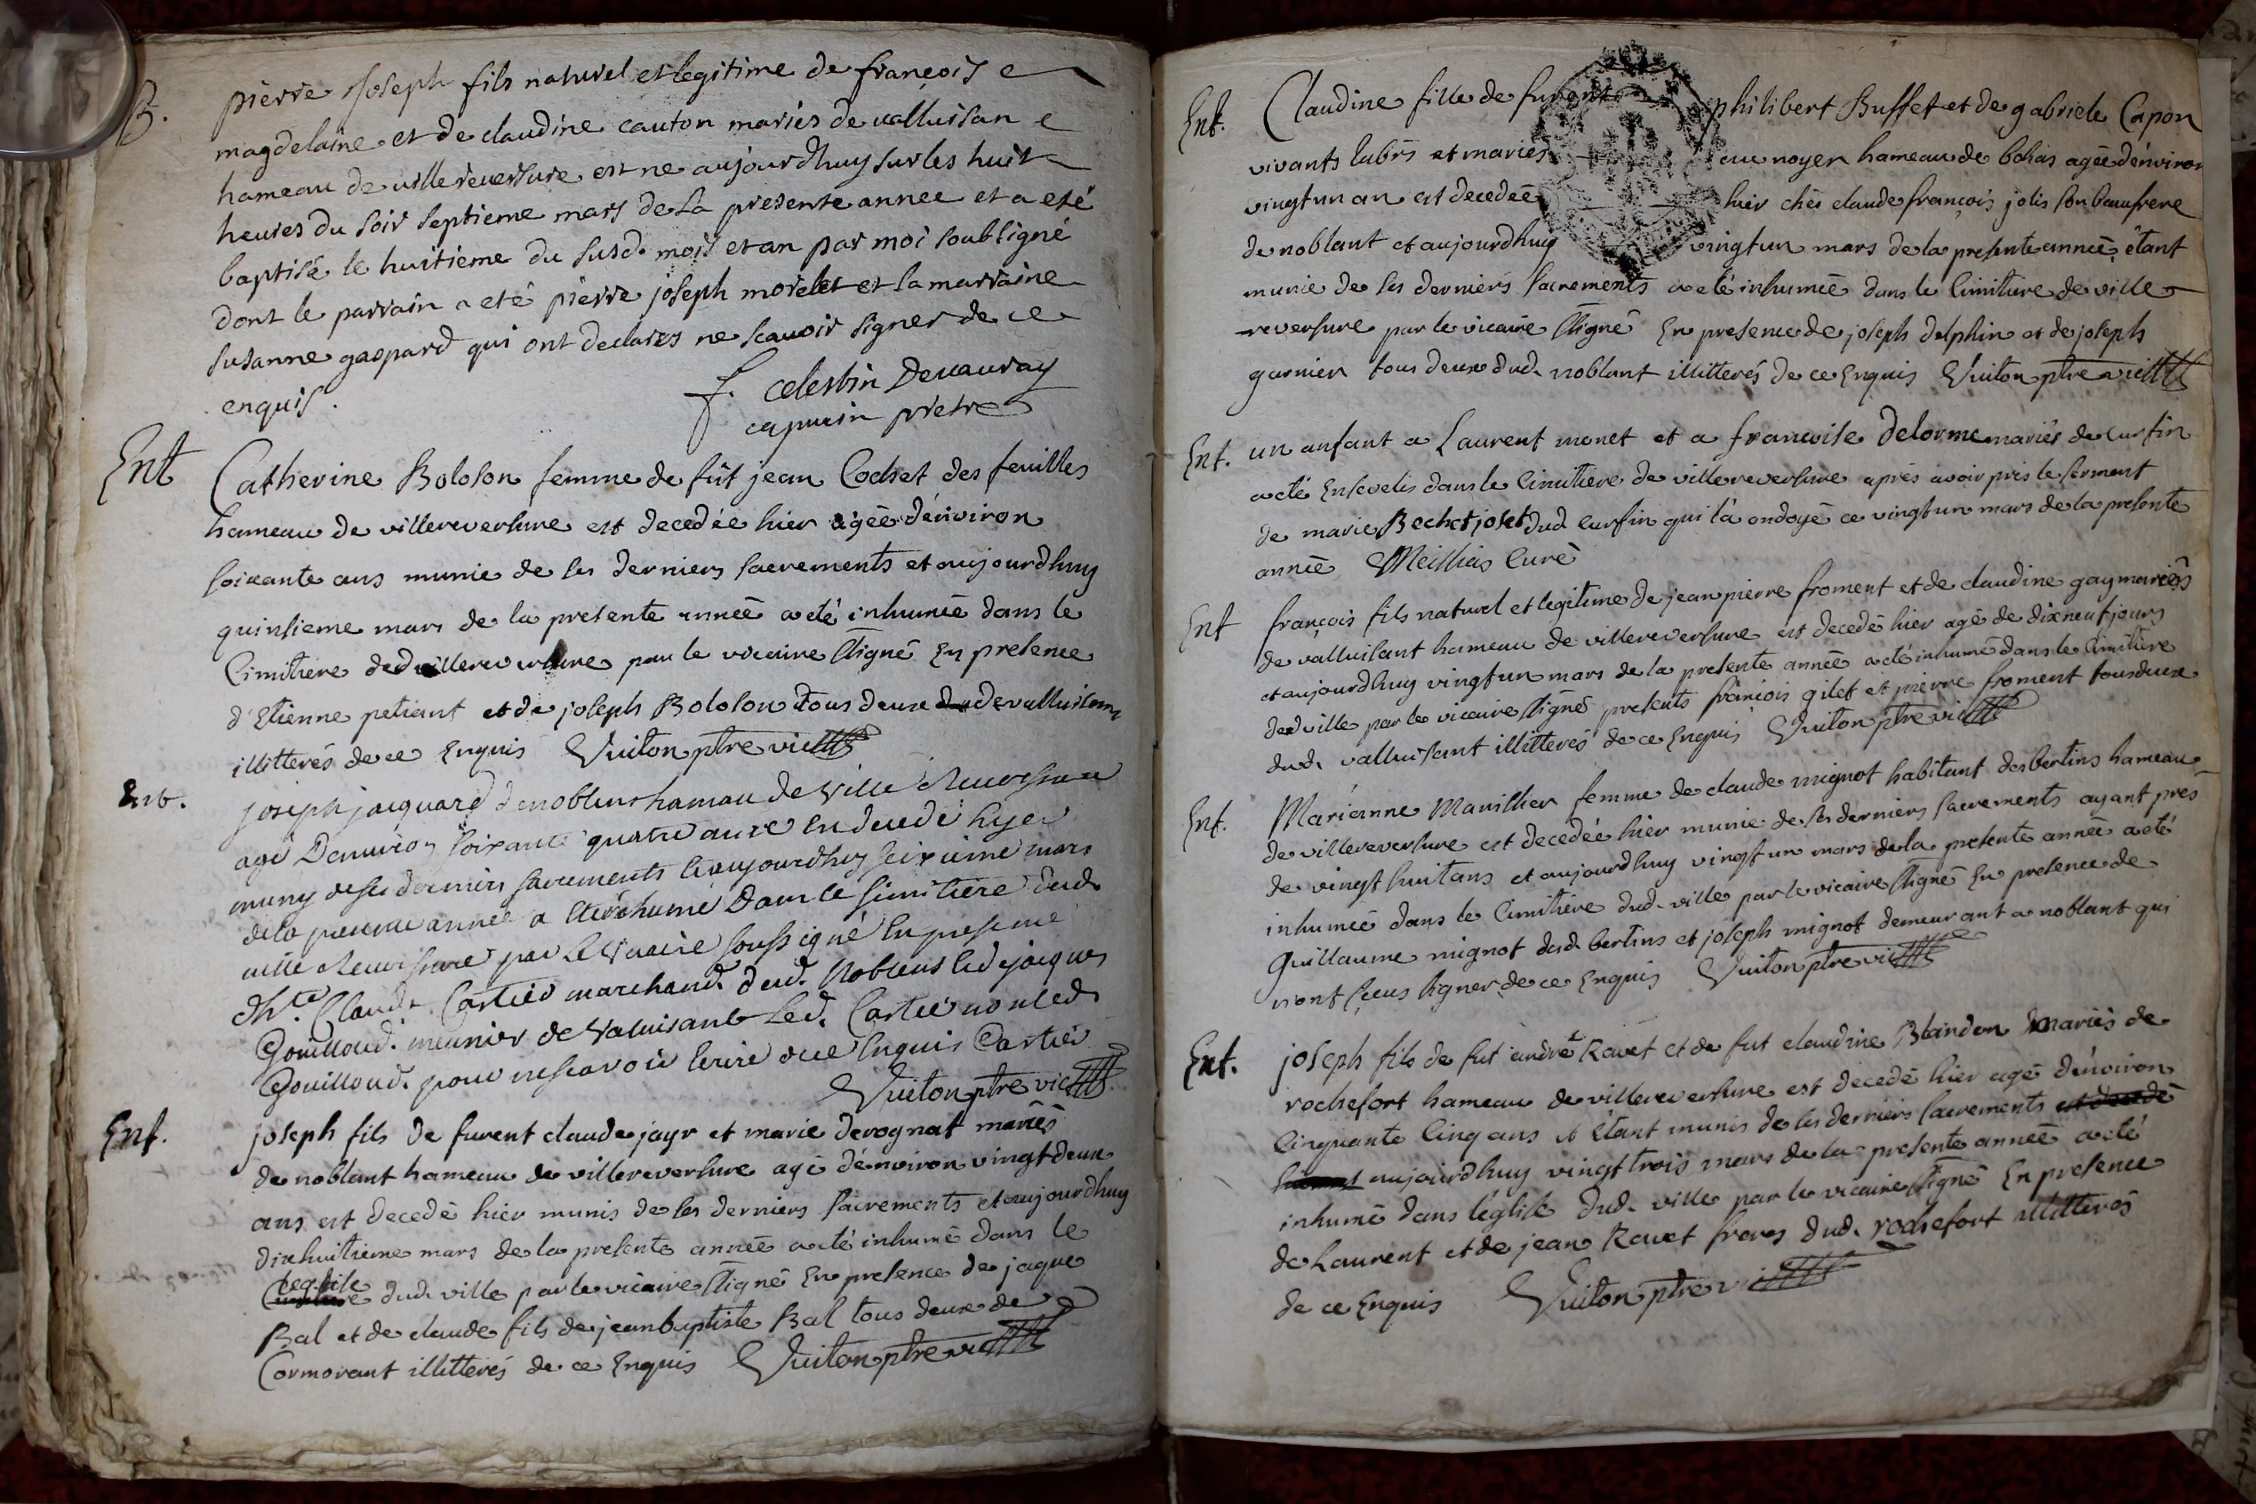 B. pierre joseph fils naturel et legitime de françois
magdelaine et de claudine cauton mariés de valluisan
hameau de villereversure est ne aujourdhuy sur les huit
heures du soir septieme mars de la presente annee et a eté
baptisé le huitieme du susd. mois et an par moi soubsigné
dont le parrain a eté pierre joseph morelet et la marraine
susanne gaspard qui ont declarés ne scavoir signer de ce
enquis.
f. celestin Devauvray
capucin pretre
Ent Catherine Boloson femme de fût jean Cochet des feuilles
hameau de villereversure est decedée hier agée d'enviroron
soixante ans munie de ses derniers sacrements et aujourdhuy
quinsieme mars de la presente année a eté inhumée dans le
Cimitiere dud villereversure par le vicaire ssigné En presence
d'Etienne petiant et de joseph Boloson tous deux de valluisant
illitterés de ce Enquis Vuiton ptre vic
Ent. joseph jacquard de noblens hamau de ville Reversure
agé Denviron soixante quatre ans est decedé hyer
muny de ses derniers sacrements et aujourdhuy seixieme mars
de la presente année a eté inhumé Dans le simitiere dud.
ville Reversure par le vicaire soussigné En presence
d'h.te Claude Cartier marchand. dud. Noblens et de jacques
Gouilloud. meunier de Valuisant led. Cartier non led.
Gouilloud. pour ne scavoir écrire de ce Enquis Cartier
Vuiton ptre vic
Ent. joseph fils de furent claude jayr et marie derognat mariés
de noblant hameau de villereversure agé d'environ vingt deux
ans est decedé hier munis de ses derniers sacrements et aujourdhuy
dixhuitieme mars de la presente année a eté inhumé dans le
l'eglise dud. ville par le vicaire ssigné En presence de jaque
Bal et de claude fils de jean baptiste Bal tous deux de
Cormorant illitterés de ce Enquis Vuiton ptre vic
Ent. Claudine fille de furent philibert Buffet et de gabriele Capon
vivants labrs et mariés au noyer hameau de bohas agée d'environ
vingt un an est decedée hier chés claude françois jolis son beaufrere
de noblant et aujourdhuy vingt un mars de la presente année, étant
munie de ses derniers sacrements a eté inhumée dans le Cimitiere de ville
reversure par le vicaire ssigné En presence de joseph delphin et de joseph
garnier tous deux dud. noblant illitterés de ce Enquis Vuiton ptre vic
Ent. un anfant a Laurent monet et a francoise Delorme mariés de Curfin
a eté Ensevelis dans le Cimitiere de villereversure aprés avoir pris le serment
de marie Bechet joset dud Curfin qui l'a ondoyé ce vingt un mars de la presente
année Meillias Curé
Ent françois fils naturel et legitime de jean pierre froment et de claudine gay mariés
de valluisant hameau de villereversure est decedé hier agé de dixneuf jours
et aujourdhuy vingt un mars de la presente année a eté inhumé dans le Cimitiere
dud ville par le vicaire ssigné presents françois gilet et pierre froment tous deux
dud. valluisant illitterés de ce Enquis Vuiton ptre vic
Ent. Marianne Manillier femme de claude mignot habitant des bertins hameau
de villereversure est decedée hier munie de ses derniers sacrements ayant pres
de vingt huit ans et aujourdhuy vingt un mars de la presente année a eté
inhumée dans le Cimitiere dud. ville par le vicaire ssigné En presence de
Guillaume mignot dud. bertins et joseph mignot demeurant a noblant qui
n'ont sçeus signer de ce Enquis Vuiton ptre vic
Ent. joseph fils de fut andré Ravet et de fut claudine Blandon mariés de
rochefort hameau de villereversure est decedé hier agé d'environ
Cinquante Cinq ans et étant munis de ses derniers sacrements est decedé
aujourdhuy vingt trois mars de la presente année a eté
inhumé dans l'église dud. ville par le vicaire ssigné En presence
de Laurent et de jean Ravet freres dud. rochefort illitterés
de ce Enquis Vuiton ptre vic